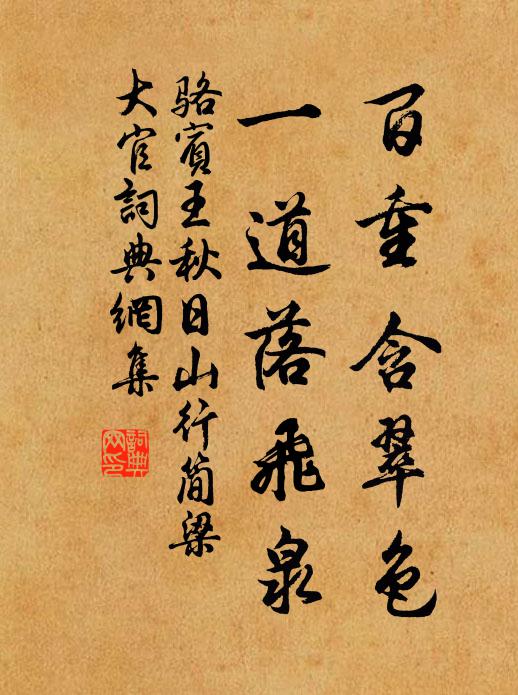 百重含翠色
一道落飛泉
駱賓王秋日山行简梁
大官詞典網集
詞典網印